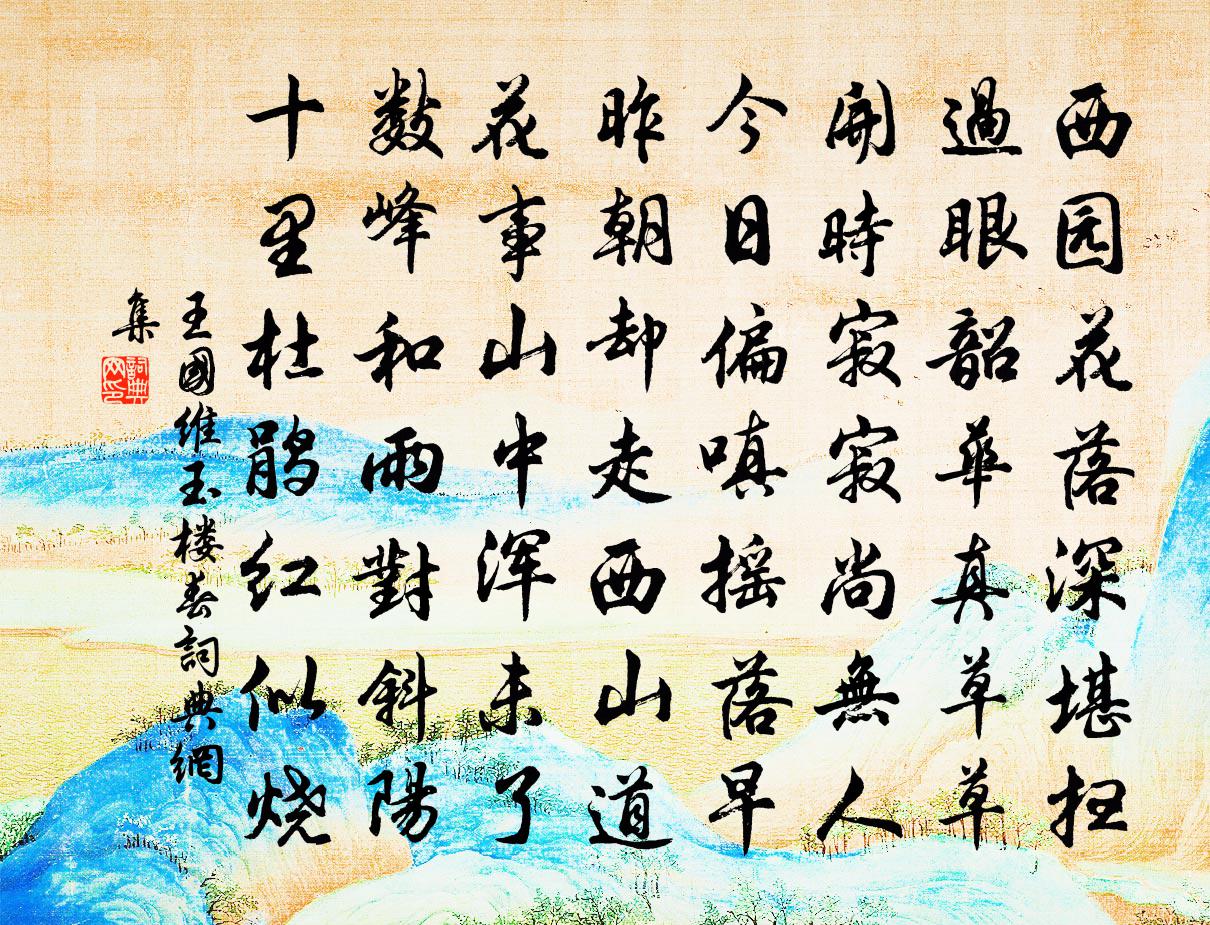 西园花落深堪扫
過眼韶華真草草
開時寂寂尚無人
今日偏嗔摇落早
昨朝却走西山道
花事山中浑未了
数峰和雨對斜陽
十里杜鹃红似烧
王國維玉楼春詞典網
集
詞典網印